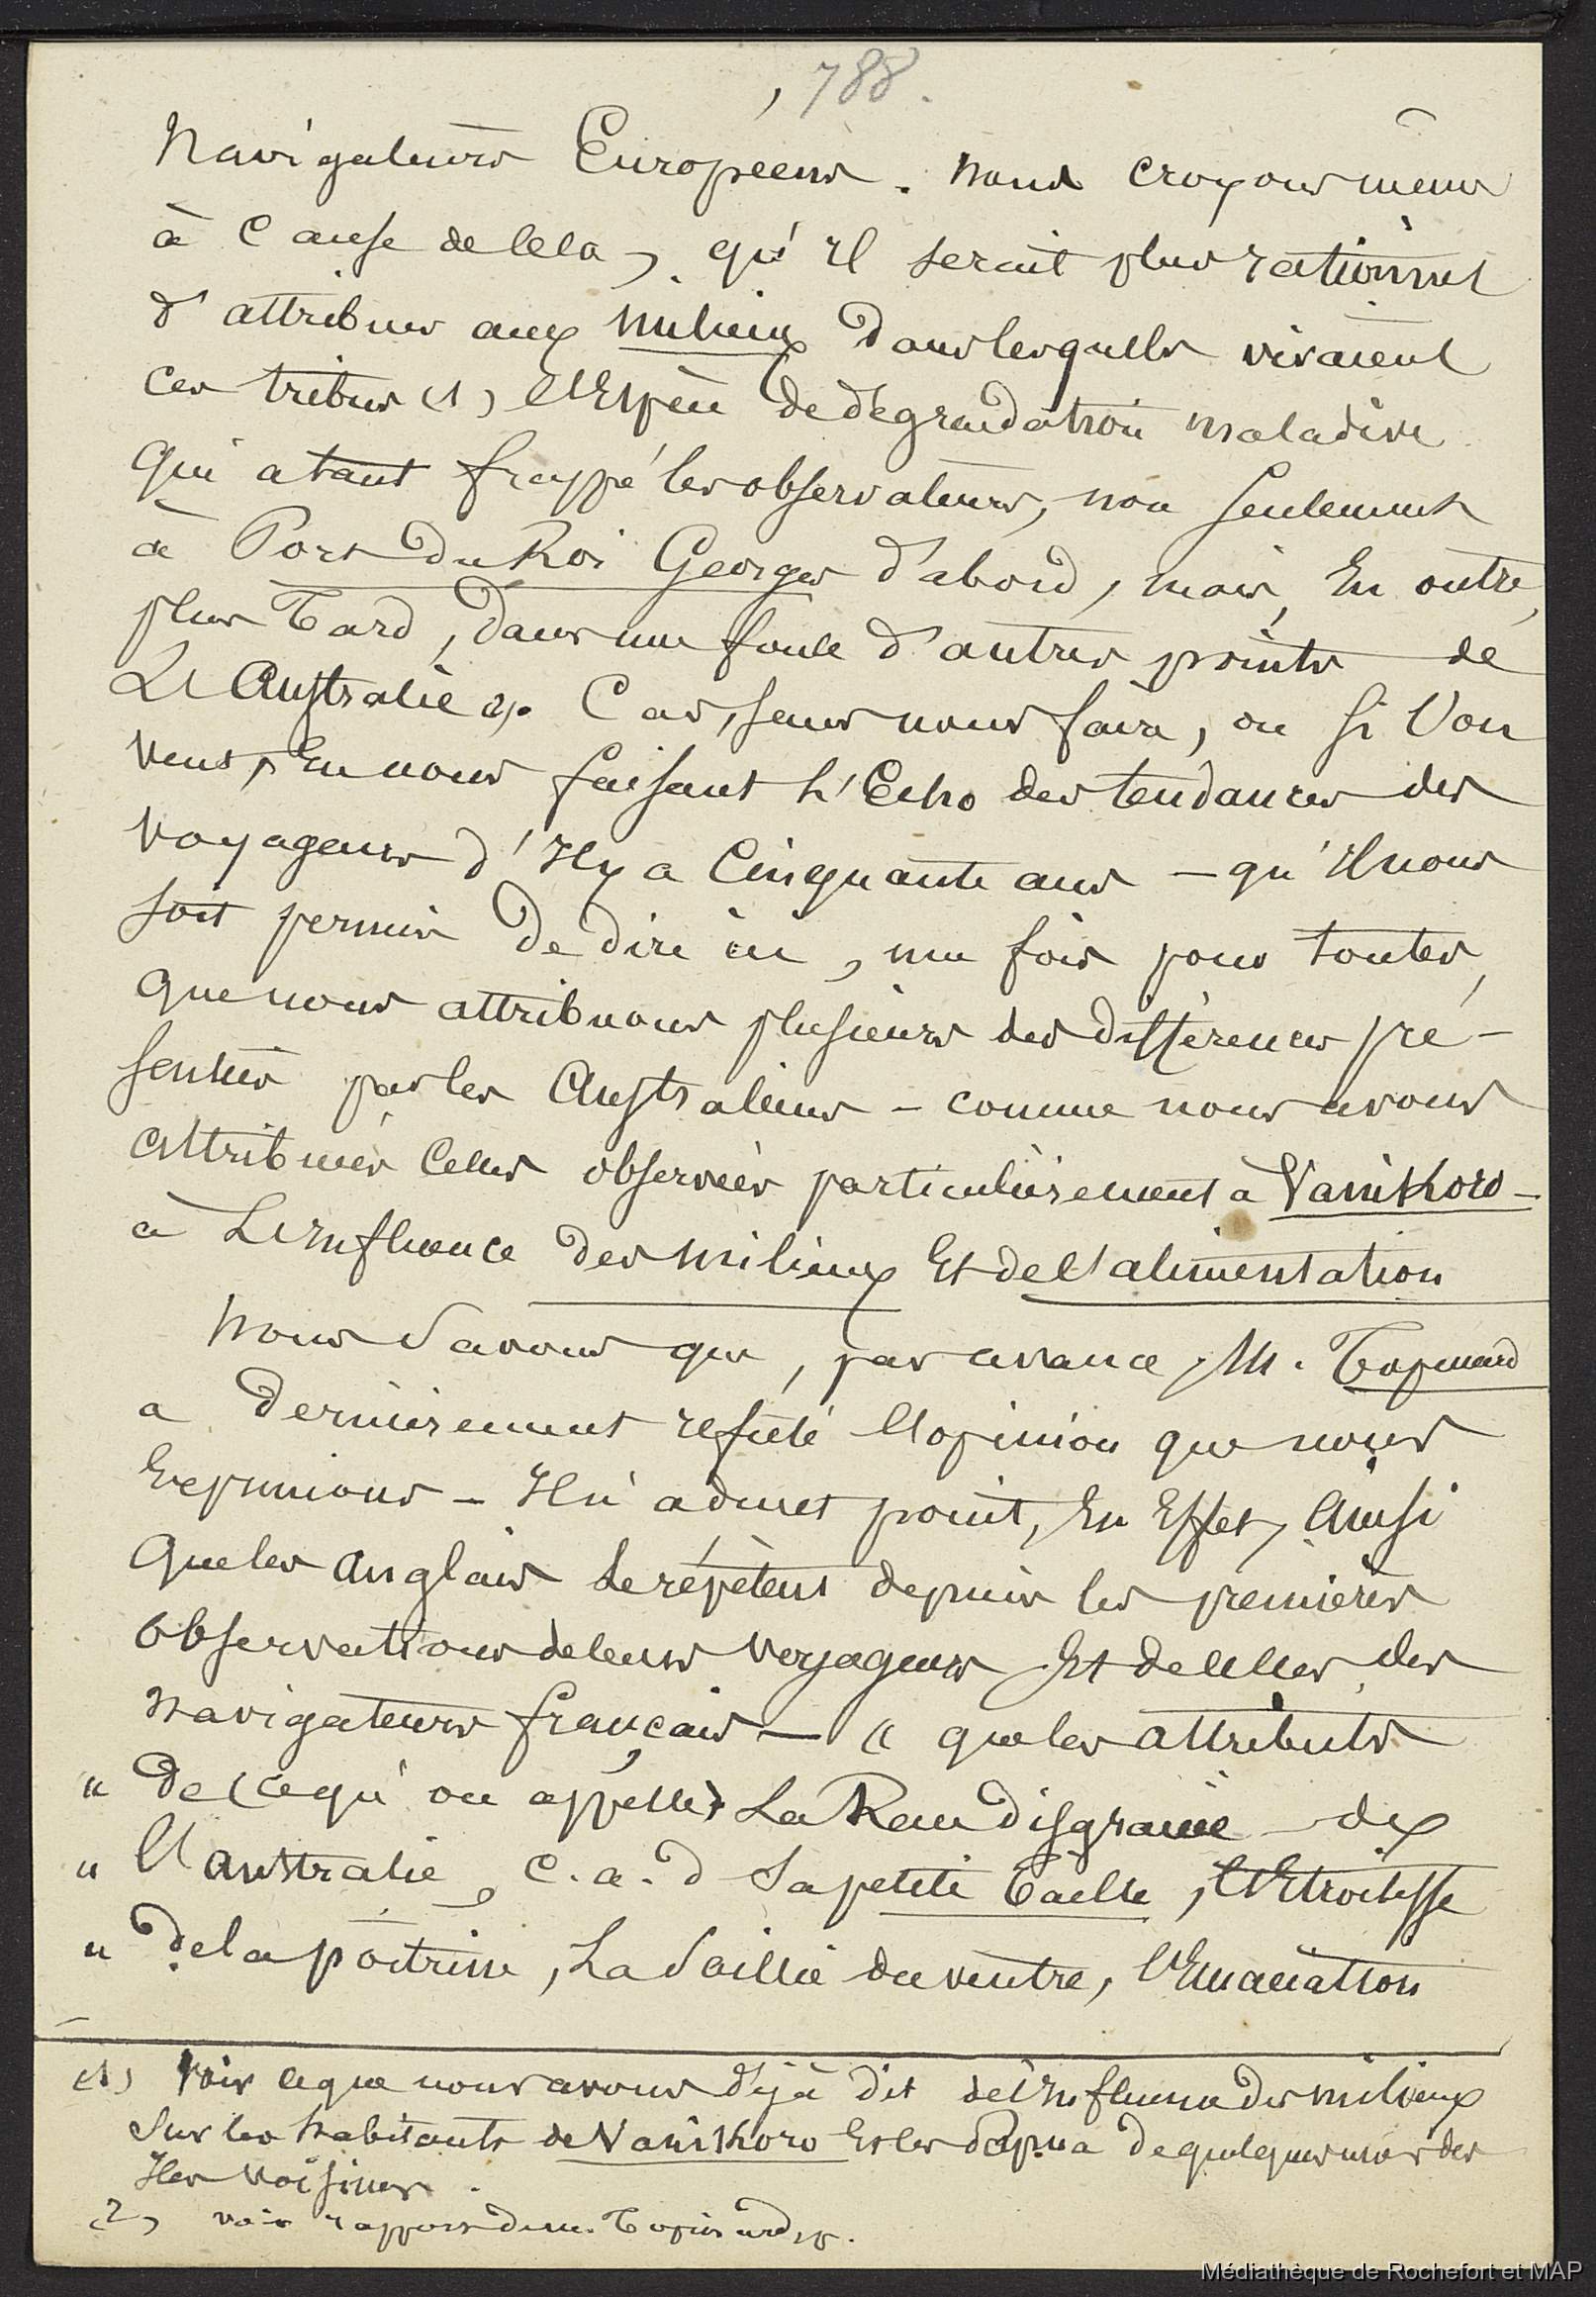 788.
Navigateurs Européens. Nous croyons même
à cause de cela, qu'il serait plus rationnel
d'attribuer aux milieux dans lesquels vivaient
ces tribus (1) l'Espèce de dégrandation maladive
qui a tant frappé les observateurs, non seulement
à Port du Roi Georges d'abord, mais, En outre,
plus Tard, dans une foule d'autres points de
L'Australie (2). Car, sans nous faire, ou si l'on
veut, En nous faisant l'Echo des tendances des
voyageurs d'Il y a Cinquante ans – qu'Il nous
soit permis De dire ici, une fois pour toutes,
que nous attribuons plusieurs des différences pré-
sentées par les Australiens – comme nous avons
attribuées celles observées particulièrement à Vanikoro –
à L'Influence des milieux Et de l'alimentation
Nous Savons que, par avance, M. Topinard
a Dernièrement refuté l'opinion que nous
Exprimons – Il n'admet point, En Effet, Ainsi
que les anglais le répètent depuis les premières
observations de leurs voyageurs Et de celles des
navigateurs français – « que les attributs
« De ce qu'on appelle La Race disgraciée de
« l'australie, c.a.d Sa petite Taille, l'Etroitesse
« de la poitrine, La Saillie du ventre, l'Emaciation
(1) Voir ce que nous avons déjà dit de l'Influence des milieux
Sur les habitants de Vanikoro Et les Papua de quelques unes des
Iles voisines.
(2) voir rapport de M. Topinard
Médiathèque de Rochefort et MAP